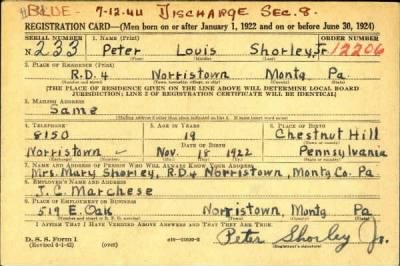 BLDE. 7-12-44 DISCHARGE SEC. 8.
REGISTRATION CARD—(Men born on or after January 1, 1922 and on or before June 30, 1924)
SERIAL NUMBER 1. NAME (Print) ORDER NUMBER
N 233 Peter Louis Shorley, Jr. 12206
(First) (Middle) (Last)
2. PLACE OF RESIDENCE (Print)
R.D.4 Norristown Montg Pa
[THE PLACE OF RESIDENCE GIVEN ON THE LINE ABOVE WILL DETERMINE LOCAL BOARD
JURISDICTION; LINE 2 OF REGISTRATION CERTIFICATE WILL BE IDENTICAL]
3. MAILING ADDRESS
Same
4. TELEPHONE 5. AGE IN YEARS 6. PLACE OF BIRTH
8150 19 Chestnut Hill
DATE OF BIRTH
Norristown Nov. 18 1922 Pennsylvania
7. NAME AND ADDRESS OF PERSON WHO WILL ALWAYS KNOW YOUR ADDRESS
Mrs. Mary Shorley, R.D4 Norristown, Montg Co. Pa
8. EMPLOYER'S NAME AND ADDRESS
J. C. Marchese
9. PLACE OF EMPLOYMENT OR BUSINESS
519 E. Oak Norristown, Montg Pa
I AFFIRM THAT I HAVE VERIFIED ABOVE ANSWERS AND THAT THEY ARE TRUE.
D. S. S. Form 1 (over)
Peter Shorley Jr.